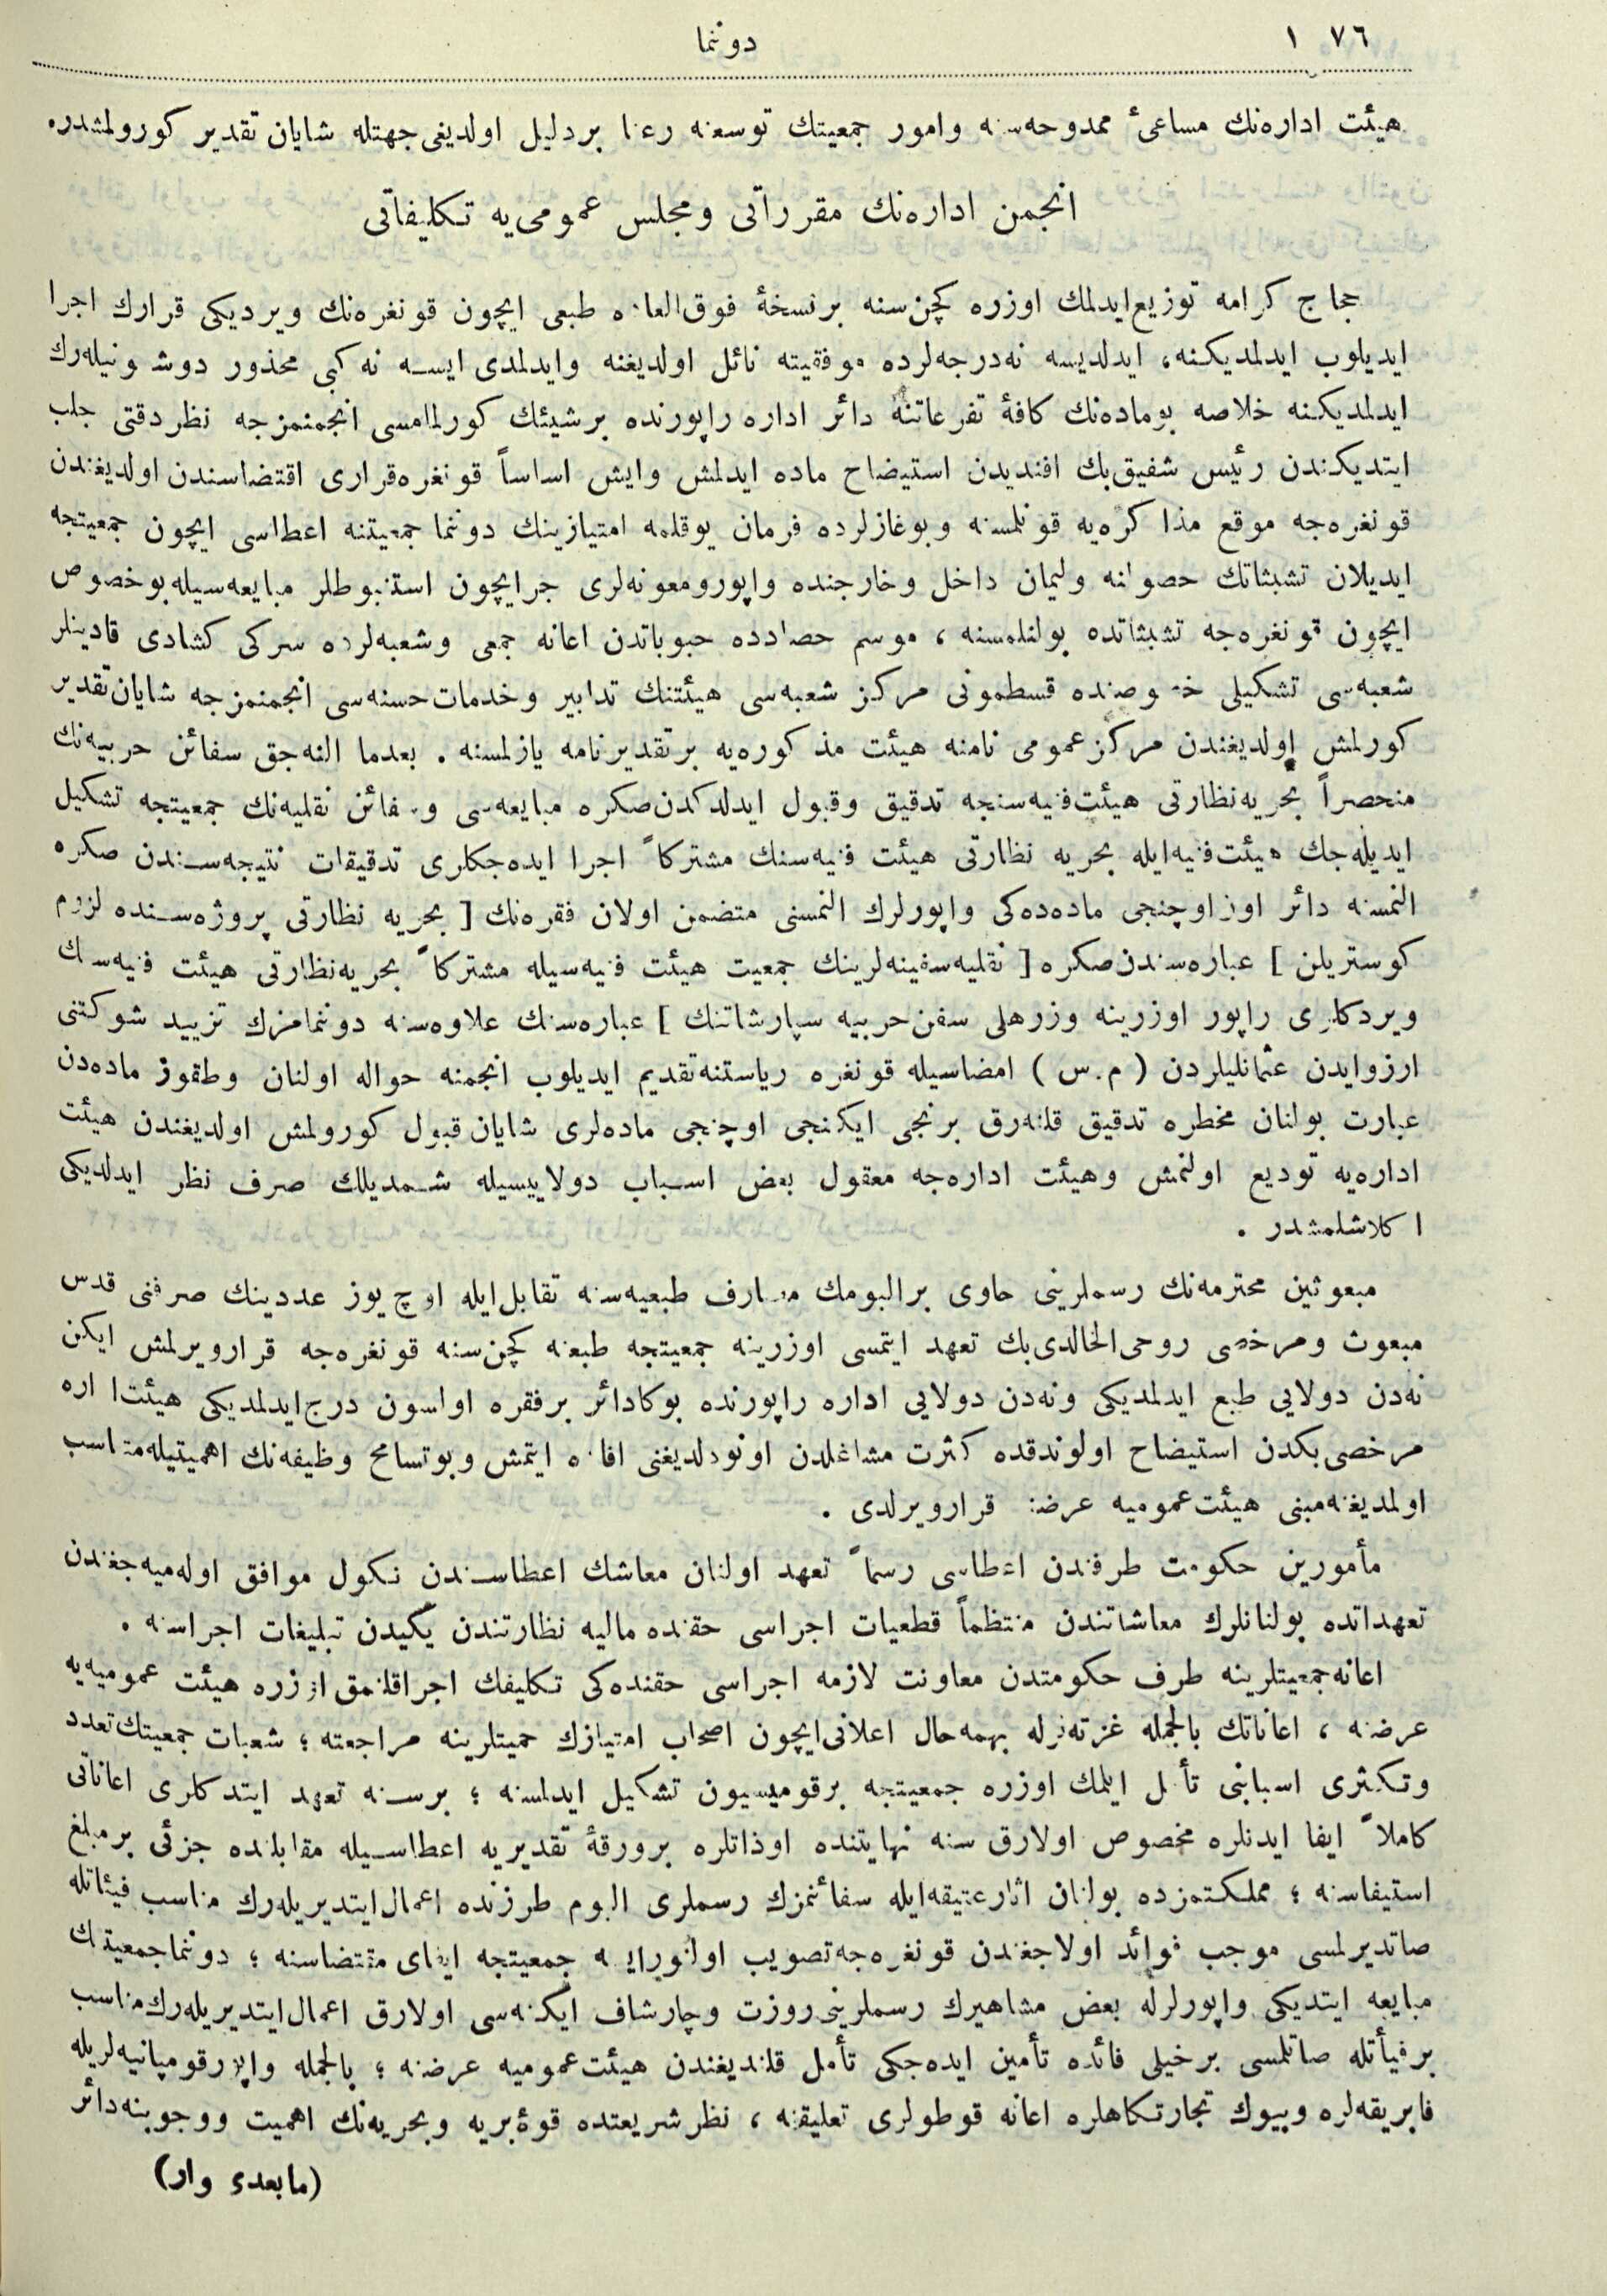 ١٧٦ دوننما
هيئت اداره‌نك مساعیٔ ممدوحه‌سنه وامور جمعيتك توسعنه رعنا بردليل اولديغی جهتله شايان تقدير كورولمشدر.
انجمن اداره‌نك مقرراتی ومجلس عمومی‌يه تكليفاتی
حجاج كرامه توزيع ايدلمك اوزره كچن‌سنه برنسخهٔ فوق‌العاده طبعی ايچون قونغره‌نك ويرديكی قرارك اجرا
ايديلوب ايدلمديكنه، ايدلديسه نه‌درجه‌لرده موفقيته نائل اولديغنه وايدلمدی ايسه نه كبی محذور دوشونيله‌رك
ايدلمديكنه خلاصه بوماده‌نك كافهٔ تفرعاتنه دائر اداره راپورنده برشيئك كورلمامسی انجمنمزجه نظردقتی جلب
ايتديكندن رئيس شفيق‌بك افنديدن استيضاح ماده ايدلمش وايش اساساً قونغره‌قراری اقتضاسندن اولديغندن
قونغره‌جه موقع مذاكره‌يه قونلمسنه وبوغازلرده فرمان يوقلمه امتيازينك دوننما جمعيتنه اعطاسی ايچون جمعيتجه
ايديلان تشبثاتك حصولنه وليمان داخل وخارجنده واپورومعونه‌لری جرايچون استنبوطلر مبايعه‌سيله بوخصوص
ايچون قونغره‌جه تشبثاتده بولنلمسنه ، موسم حصادده حبوباتدن اعانه جمعی وشعبه‌لرده سركی كشادی قادينلر
شعبه‌سی تشكيلی خصوصنده قسطمونی مركز شعبه‌سی هيئتنك تدابير وخدمات‌حسنه‌سی انجمنمزجه شايان‌تقدير
كورلمش اولديغندن مركزعمومی نامنه هيئت مذكوره‌يه برتقديرنامه يازلمسنه . بعدما النه‌جق سفائن حربيه‌نك
منحصراً بحريه‌نظارتی هيئت‌فنيه‌سنجه تدقيق وقبول ايدلدكدن‌صكره مبايعه‌سی وسفائن نقليه‌نك جمعيتجه تشكيل
ايديله‌جك هيئت‌فنيه‌ايله بحريه نظارتی هيئت فنيه‌سنك مشتركاً اجرا ايده‌جكلری تدقيقات نتيجه‌سندن صكره
النمسنه دائر اون‌اوچنجی ماده‌ده‌كی واپورلرك النمسنی متضمن اولان فقره‌نك [ بحريه نظارتی پروژه‌سنده لزوم
كوستريلن ] عباره‌سندن‌صكره [ نقليه‌سفينه‌لرينك جمعيت هيئت فنيه‌سيله مشتركاً بحريه‌نظارتی هيئت فنيه‌سنك
ويردكلری راپور اوزرينه وزرهلی سفن‌حربيه سپارشاتنك ] عباره‌سنك علاوه‌سنه دوننمامزك تزييد شوكتنی
ارزوايدن عثمانليلردن ( م.س ) امضاسيله قونغره رياستنه‌تقديم ايديلوب انجمنه حواله اولنان وطقوز ماده‌دن
عبارت بولنان مخطره تدقيق قلنه‌رق برنجی ايكنجی اوچنجی ماده‌لری شايان‌قبول كورولمش اولديغندن هيئت
اداره‌يه توديع اولنمش وهيئت اداره‌جه معقول بعض اسباب دولاييسيله شمديلك صرف نظر ايدلديكی
اكلاشلمشدر .
مبعوثين محترمه‌نك رسملرينی حاوی برالبومك مصارف طبعيه‌سنه تقابل‌ايله اوچ‌يوز عددينك صرفنی قدس
مبعوث ومرخصی روحی‌الخالدی‌بك تعهد ايتمسی اوزرينه جمعيتجه طبعنه كچن‌سنه قونغره‌جه قرارويرلمش ايكن
نه‌دن دولايی طبع ايدلمديكی ونه‌دن دولايی اداره راپورنده بوكادائر برفقره اولسون درج‌ايدلمديكی هيئت‌اداره
مرخصی‌بكدن استيضاح اولوندقده كثرت مشاغلدن اونودلديغنی افاده ايتمش وبوتسامح وظيفه‌نك اهميتيله‌متناسب
اولمديغنه‌مبنی هيئت‌عموميه عرضنه قرارويرلدی .
مأمورين حكومت طرفندن اعطاسی رسماً تعهد اولنان معاشك اعطاسندن نكول موافق اوله‌ميه‌جغندن
تعهداتده بولنانلرك معاشاتندن منتظماً قطعيات اجراسی حقنده ماليه نظارتندن يكيدن تبليغات اجراسنه .
اعانه‌جمعيتلرينه طرف حكومتدن معاونت لازمه اجراسی حقنده‌كی تكليفك اجراقلنمق اوزره هيئت عموميه‌يه
عرضنه ، اعاناتك بالجمله غزته‌لرله بهمه‌حال اعلانی‌ايچون اصحاب امتيازك حميتلرينه مراجعته ؛ شعبات جمعيتك‌تعدد
وتكثری اسبابنی تأمل ايلمك اوزره جمعيتجه برقوميسيون تشكيل ايدلمسنه ؛ برسنه تعهد ايتدكلری اعاناتی
كاملاً ايفا ايدنلره مخصوص اولارق سنه نهايتنده اوذاتلره برورقهٔ تقديريه اعطاسيله مقابلنده جزئی برمبلغ
استيفاسنه ؛ مملكتمزده بولنان اثارعتيقه‌ايله سفائنمزك رسملری البوم طرزنده اعمال‌ايتديريله‌رك مناسب فيئاتله
صاتديرلمسی موجب فوائد اولاجغندن قونغره‌جه‌تصويب اولنورايسه جمعيتجه ايفای مقتضاسنه ؛ دوننماجمعيتنك
مبايعه ايتديكی واپورلرله بعض مشاهيرك رسملرينی‌روزت وچارشاف ايكنه‌سی اولارق اعمال‌ايتديريله‌رك‌مناسب
برفيأتله صاتلمسی برخيلی فائده تأمين ايده‌جكی تأمل قلنديغندن هيئت‌عموميه عرضنه ؛ بالجمله واپورقومپانيه‌لريله
فابريقه‌لره وبيوك تجارتكاهلره اعانه قوطولری تعليقنه ، نظرشريعتده قوهٔ بريه وبحريه‌نك اهميت ووجوبنه‌دائر
(مابعدی وار)